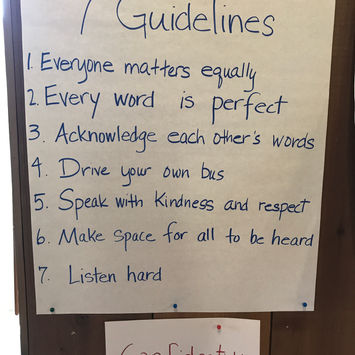 7 Guidelines
1. Everyone matters equally
2. Every word is perfect
3. Acknowledge each other's words
4. Drive your own bus
5. Speak with Kindness and respect
6. Make space for all to be heard
7. Listen hard